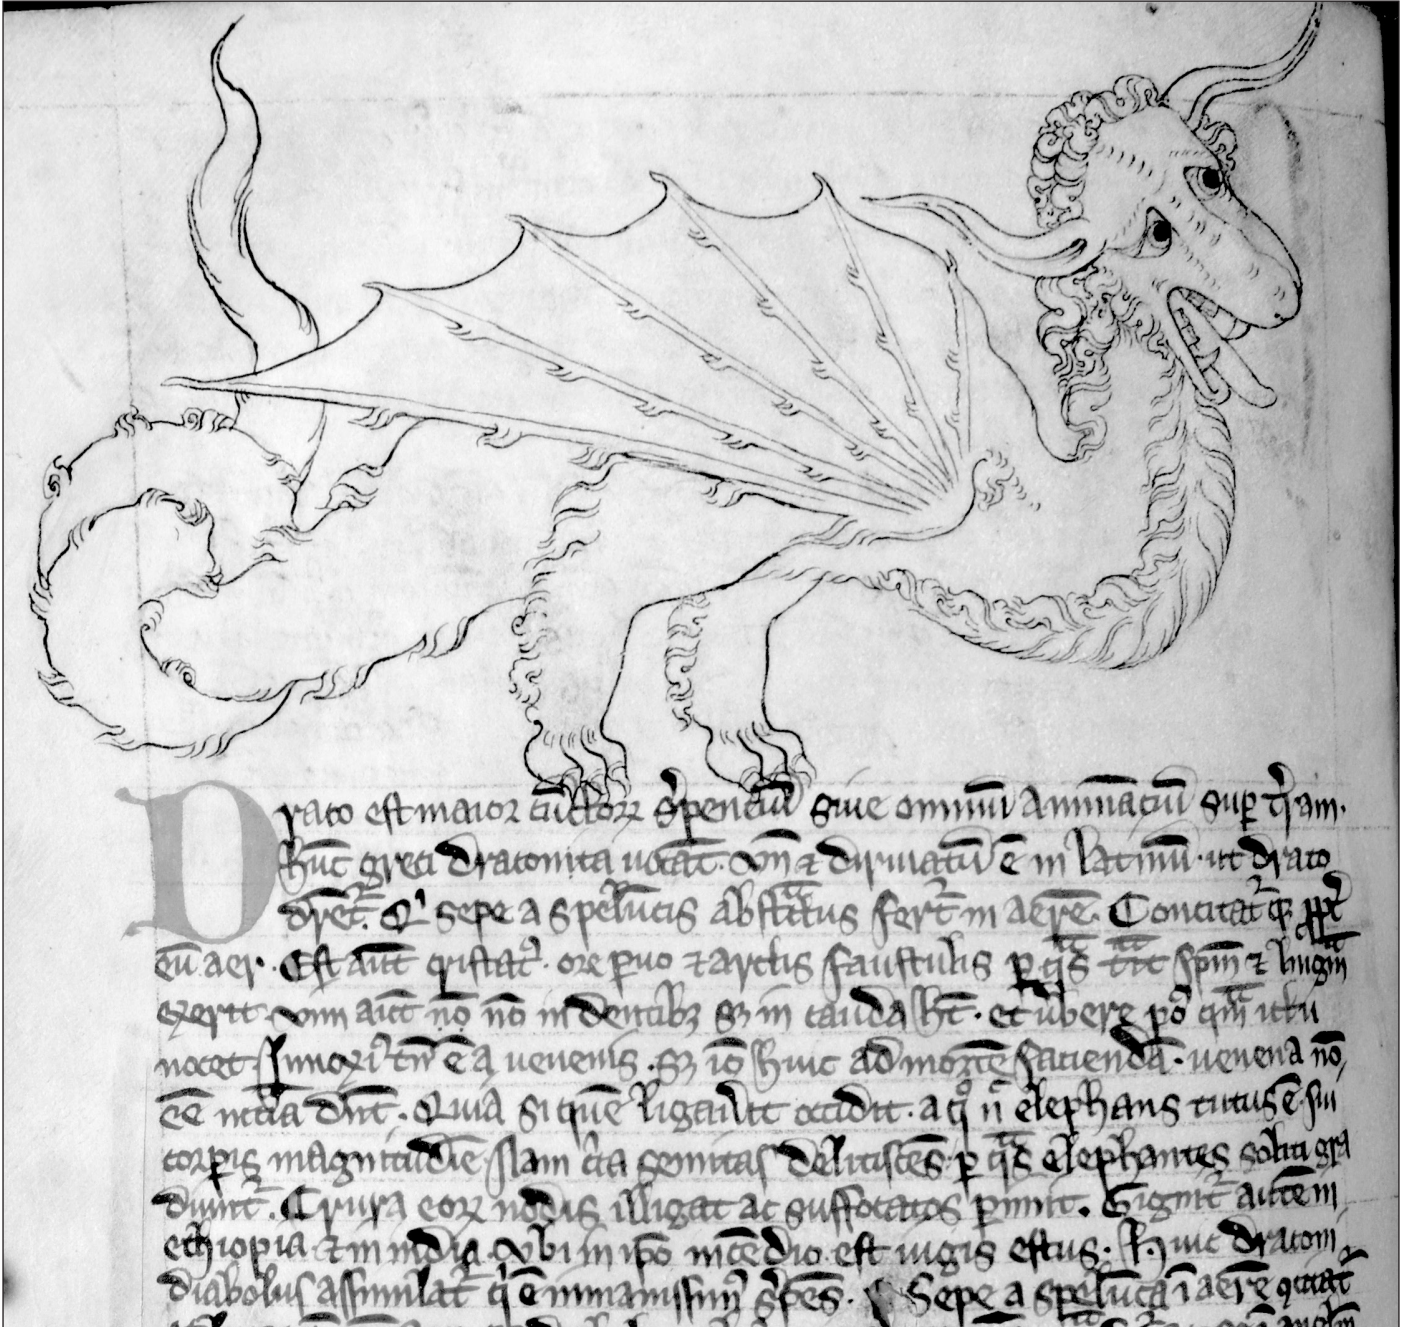 Draco est maior cūctoꝝ s̓penciū siue omniū Animāciū sup̱ t̓ram.
Hūc greci draconita uocāt. vn̄ ⁊ diriuatū ē in latinū. ut draco
dr̄et᷑. Qⁱ sepe a spelūcis abstᷓctus fert᷑ in aerē. Concitat᷑ qꝫ ꝓpt̓
eū aer. Est aūt cristatꝰ. ore paruo ⁊ artis faustulis p̱ qᷓs sp̄m ⁊ linguā
exerit. vim aūt nō in dentibꝫ sꝫ in cauda hȝ. et ubere pocꝰ qᷓm ictu
nocet. Innoxiꝰ tn̄ ē a uenenis. sꝫ iō huic ad mortē faciendā. uenena nō
eē nc̄cia dn̄t. Quia si quē ligauerit occidit. a qᵒ n̄ elephans tutus ē. sui
corp̱is magnitudīe. Nam circa semitas delitiscēs. p̱ qᷓs elephantes soliti gra
diunt᷑. Crura eoꝝ nodis illigat ac suffocatos p̱imit. Gignit᷑ autem in
ethiopia ⁊ in india. vbi in ip̄o incēdio est iugis estus. Huic draconi
diabolus assimilat᷑ qⁱ ē inmanissimꝰ s̓pēs. Sepe a spelūca ī aerē ꝯcitat᷑